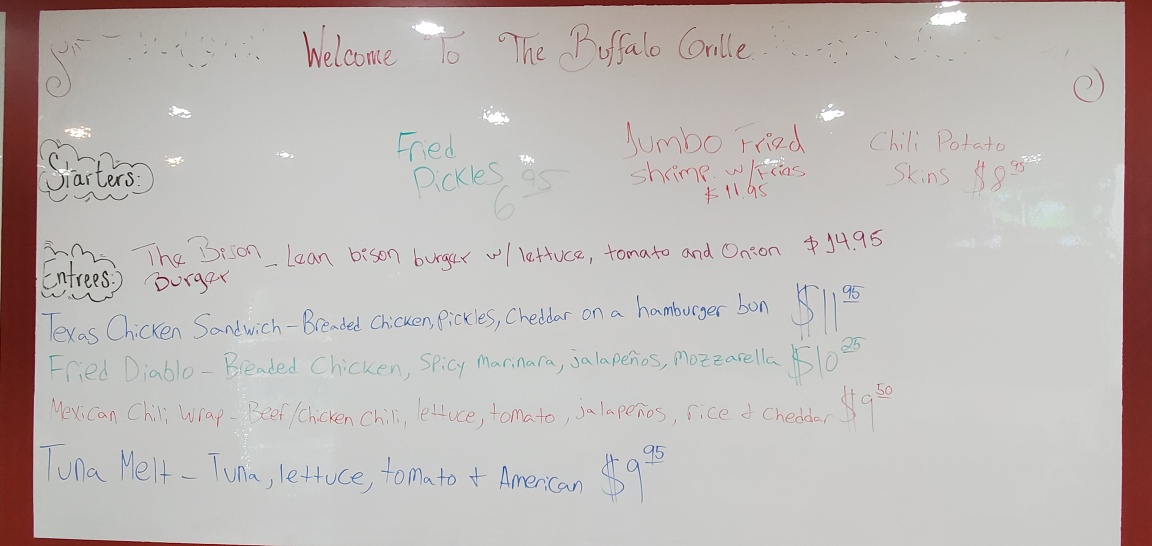 Welcome To The Buffalo Grille
Starters:
Fried
Pickles 6 95
Jumbo Fried
shrimp w/Fries
$11.95
Chili Potato
Skins $8 95
Entrees:
The Bison - Lean bison burger w/ lettuce, tomato and Onion $14.95
Burger
Texas Chicken Sandwich - Breaded Chicken, Pickles, Cheddar on a hamburger bun $11 95
Fried Diablo - Breaded Chicken, Spicy Marinara, jalapeños, Mozzarella $10 25
Mexican Chili Wrap - Beef/Chicken Chili, lettuce, tomato, jalapeños, rice + Cheddar $9 50
Tuna Melt - Tuna, lettuce, tomato + American $9 95